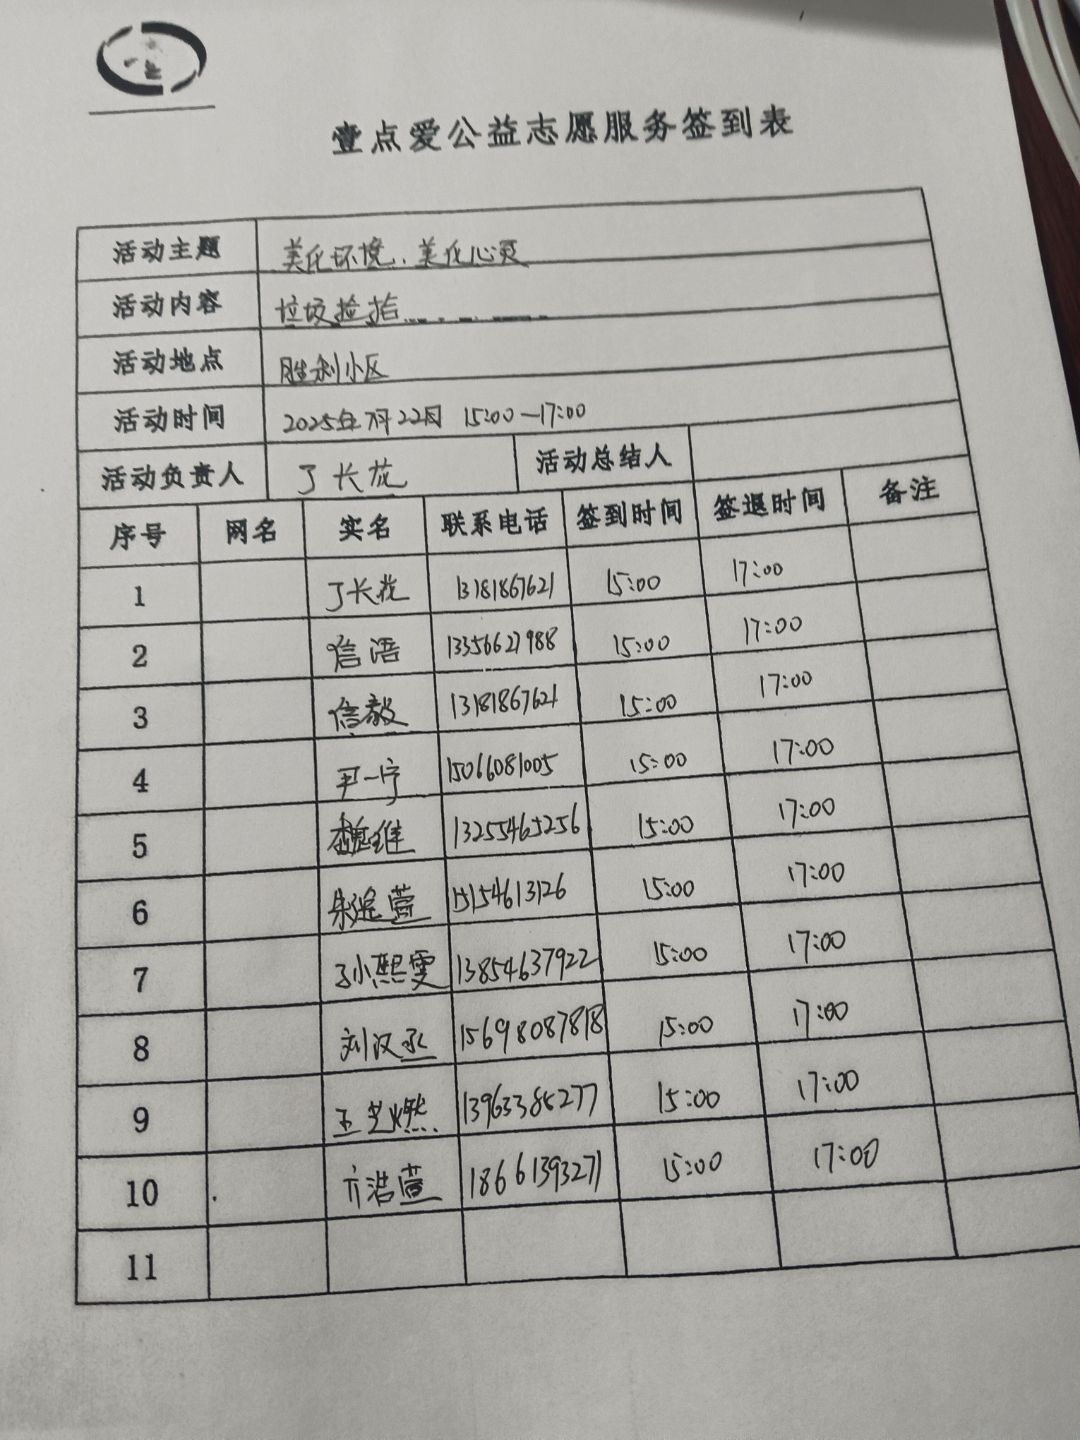 壹点爱公益志愿服务签到表
活动主题 美化环境、美化心灵
活动内容 垃圾捡拾
活动地点 胜利小区
活动时间 2025年7月22日 15:00—17:00
活动负责人 丁长龙 活动总结人
序号 网名 实名 联系电话 签到时间 签退时间 备注
1 丁长龙 13181867621 15:00 17:00
2 信语 13356627988 15:00 17:00
3 信毅 13181867621 15:00 17:00
4 尹一宁 15066081005 15:00 17:00
5 魏维 13255465256 15:00 17:00
6 15154613126 15:00 17:00
7 孙熙雯 13854637922 15:00 17:00
8 刘汉丞 15698087818 15:00 17:00
9 王艺燃 13963385277 15:00 17:00
10 亓浩萱 18661393271 15:00 17:00
11